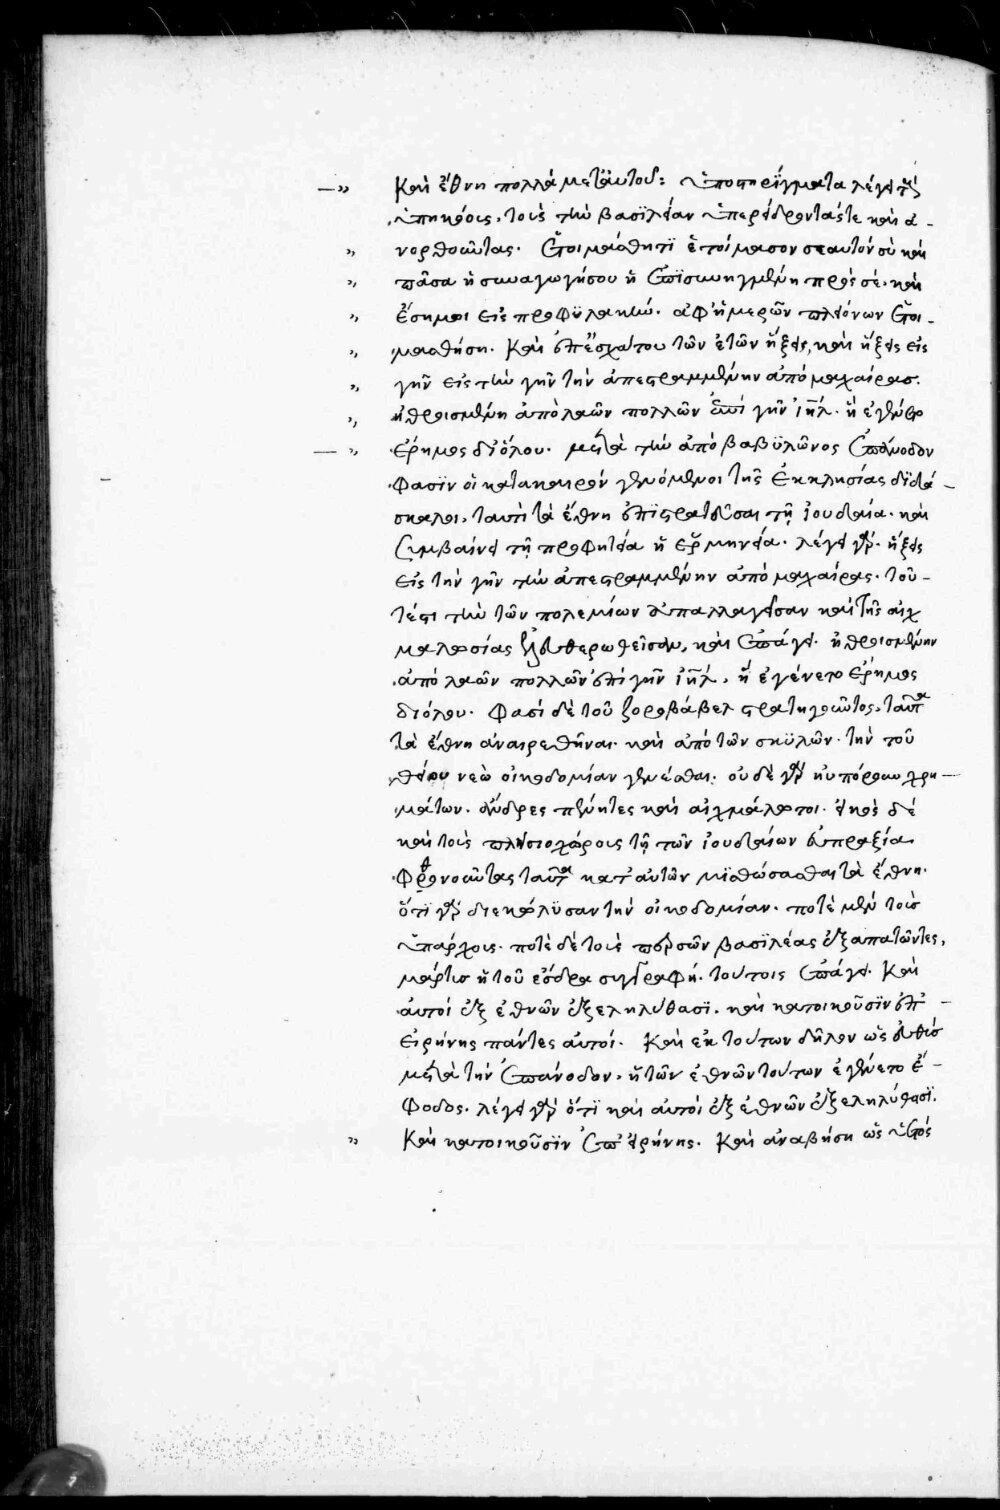 Καὶ ἔθνη πολλὰ μετ' αὐτοῦ: ὑποστηρίγματα λέγει τοὺς
ὑπηκόους, τοὺς τὴν βασιλείαν ὑπερείδοντάς τε καὶ ἀ-
νορθοῦντας. Ἑτοιμάσθητι ἑτοίμασον σεαυτὸν σὺ καὶ
πᾶσα ἡ συναγωγή σου ἡ ἐπισυνηγμένη πρὸς σέ. καὶ
ἔσῃ μοι εἰς προφυλακήν. ἀφ' ἡμερῶν πλειόνων ἑτοι-
μασθήσῃ. Καὶ ἐπ' ἐσχάτου τῶν ἐτῶν ἥξεις, καὶ ἥξεις εἰς
γῆν εἰς τὴν γῆν τὴν ἀπεστραμμένην ἀπὸ μαχαίρας.
ἠθροισμένη ἀπὸ λαῶν πολλῶν ἐπὶ γῆν ἰηλ. ἣ ἐγένετο
ἔρημος διόλου. μετὰ τὴν ἀπὸ βαβυλῶνος ἐπάνοδον
φασὶν οἱ κατακαιρὸν γενόμενοι τῆς ἐκκλησίας διδά-
σκαλοι, ταυτὶ τὰ ἔθνη ἐπιστρατεῦσαι τῇ ἰουδαία. καὶ
συμβαίνει τῇ προφητεία ἡ ἑρμηνεία. λέγει γὰρ. ἥξεις
εἰς τὴν γῆν τὴν ἀπεστραμμένην ἀπὸ μαχαίρας. του-
τέστι τὴν τῶν πολεμίων ἀπαλλαγεῖσαν καὶ τῆς αἰχ
μαλωσίας ἐλευθερωθεῖσαν, καὶ ἐπάγει. ἠθροισμένην
ἀπὸ λαῶν πολλῶν ἐπὶ γῆν ἰηλ. ἣ ἐγένετο ἔρημος
διόλου. Φασὶ δὲ τοῦ ζοροβάβελ στρατηγοῦντος, ταῦτα
τὰ ἔθνη ἀναιρεθῆναι. καὶ ἀπὸ τῶν σκύλων. τὴν τοῦ
θείου νεὼ οἰκοδομίαν γενέσθαι. οὐδὲ γὰρ ηὐπόρουν χρη-
μάτων. ἄνδρες πένητες καὶ αἰχμάλωτοι. εἰκὸς δὲ
καὶ τοὺς πλησιοχώρους τῇ τῶν ἰουδαίων εὐπραξία
φθονοῦντας ταῦτα κατ' αὐτῶν μισθώσασθαι τὰ ἔθνη.
ὅτι γὰρ διεκώλυσαν τὴν οἰκοδομίαν. ποτὲ μὲν τοὺς
ὑπάρχους. ποτὲ δὲ τοὺς περσῶν βασιλέας ἐξαπατῶντες,
μάρτυς ἡ τοῦ ἔσδρα συγγραφή. τούτοις ἐπάγει. Καὶ
αὐτοὶ ἐξ ἐθνῶν ἐξεληλύθασι. καὶ κατοικοῦσιν ἐπ'
εἰρήνης πάντες αὐτοί. Καὶ ἐκ τούτων δῆλον ὡς εὐθὺς
μετὰ τὴν ἐπάνοδον, ἡ τῶν ἐθνῶν τούτων ἐγένετο ἔ-
φοδος. λέγει γὰρ ὅτι καὶ αὐτοὶ ἐξ ἐθνῶν ἐξεληλύθασι.
Καὶ κατοικοῦσιν ἐπ' εἰρήνης. Καὶ ἀναβήσῃ ὡς ὑετὸς